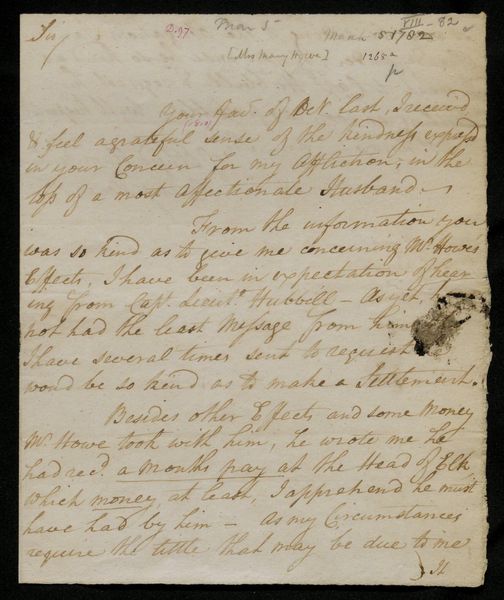 VIII - 82
D.97. Mar 5 March 5 1782
Sir
[Mrs Mary Howe] 1265
Your Favr. of Oct last, I receiv'd
& feel a grateful sense of the kindness express'd
in your Concern for my Affliction, in the
loss of a most affectionate Husband.
From the information you
was so kind as to give me concerning Mr. Howes
Effects, I have been in expectation of hear
ing from Capt. Lieut. Hubbill - As yet, h
not had the least Message from him
I have several times sent to request
woud be so kind as to make a Settlement.
Besides other Effects and some Money
Mr. Howe took with him, he wrote me he
had recd. a months pay at the Head of Elk
which money at least, I apprehend he must
have had by him - As my Circumstances
require the little that may be due to me
It